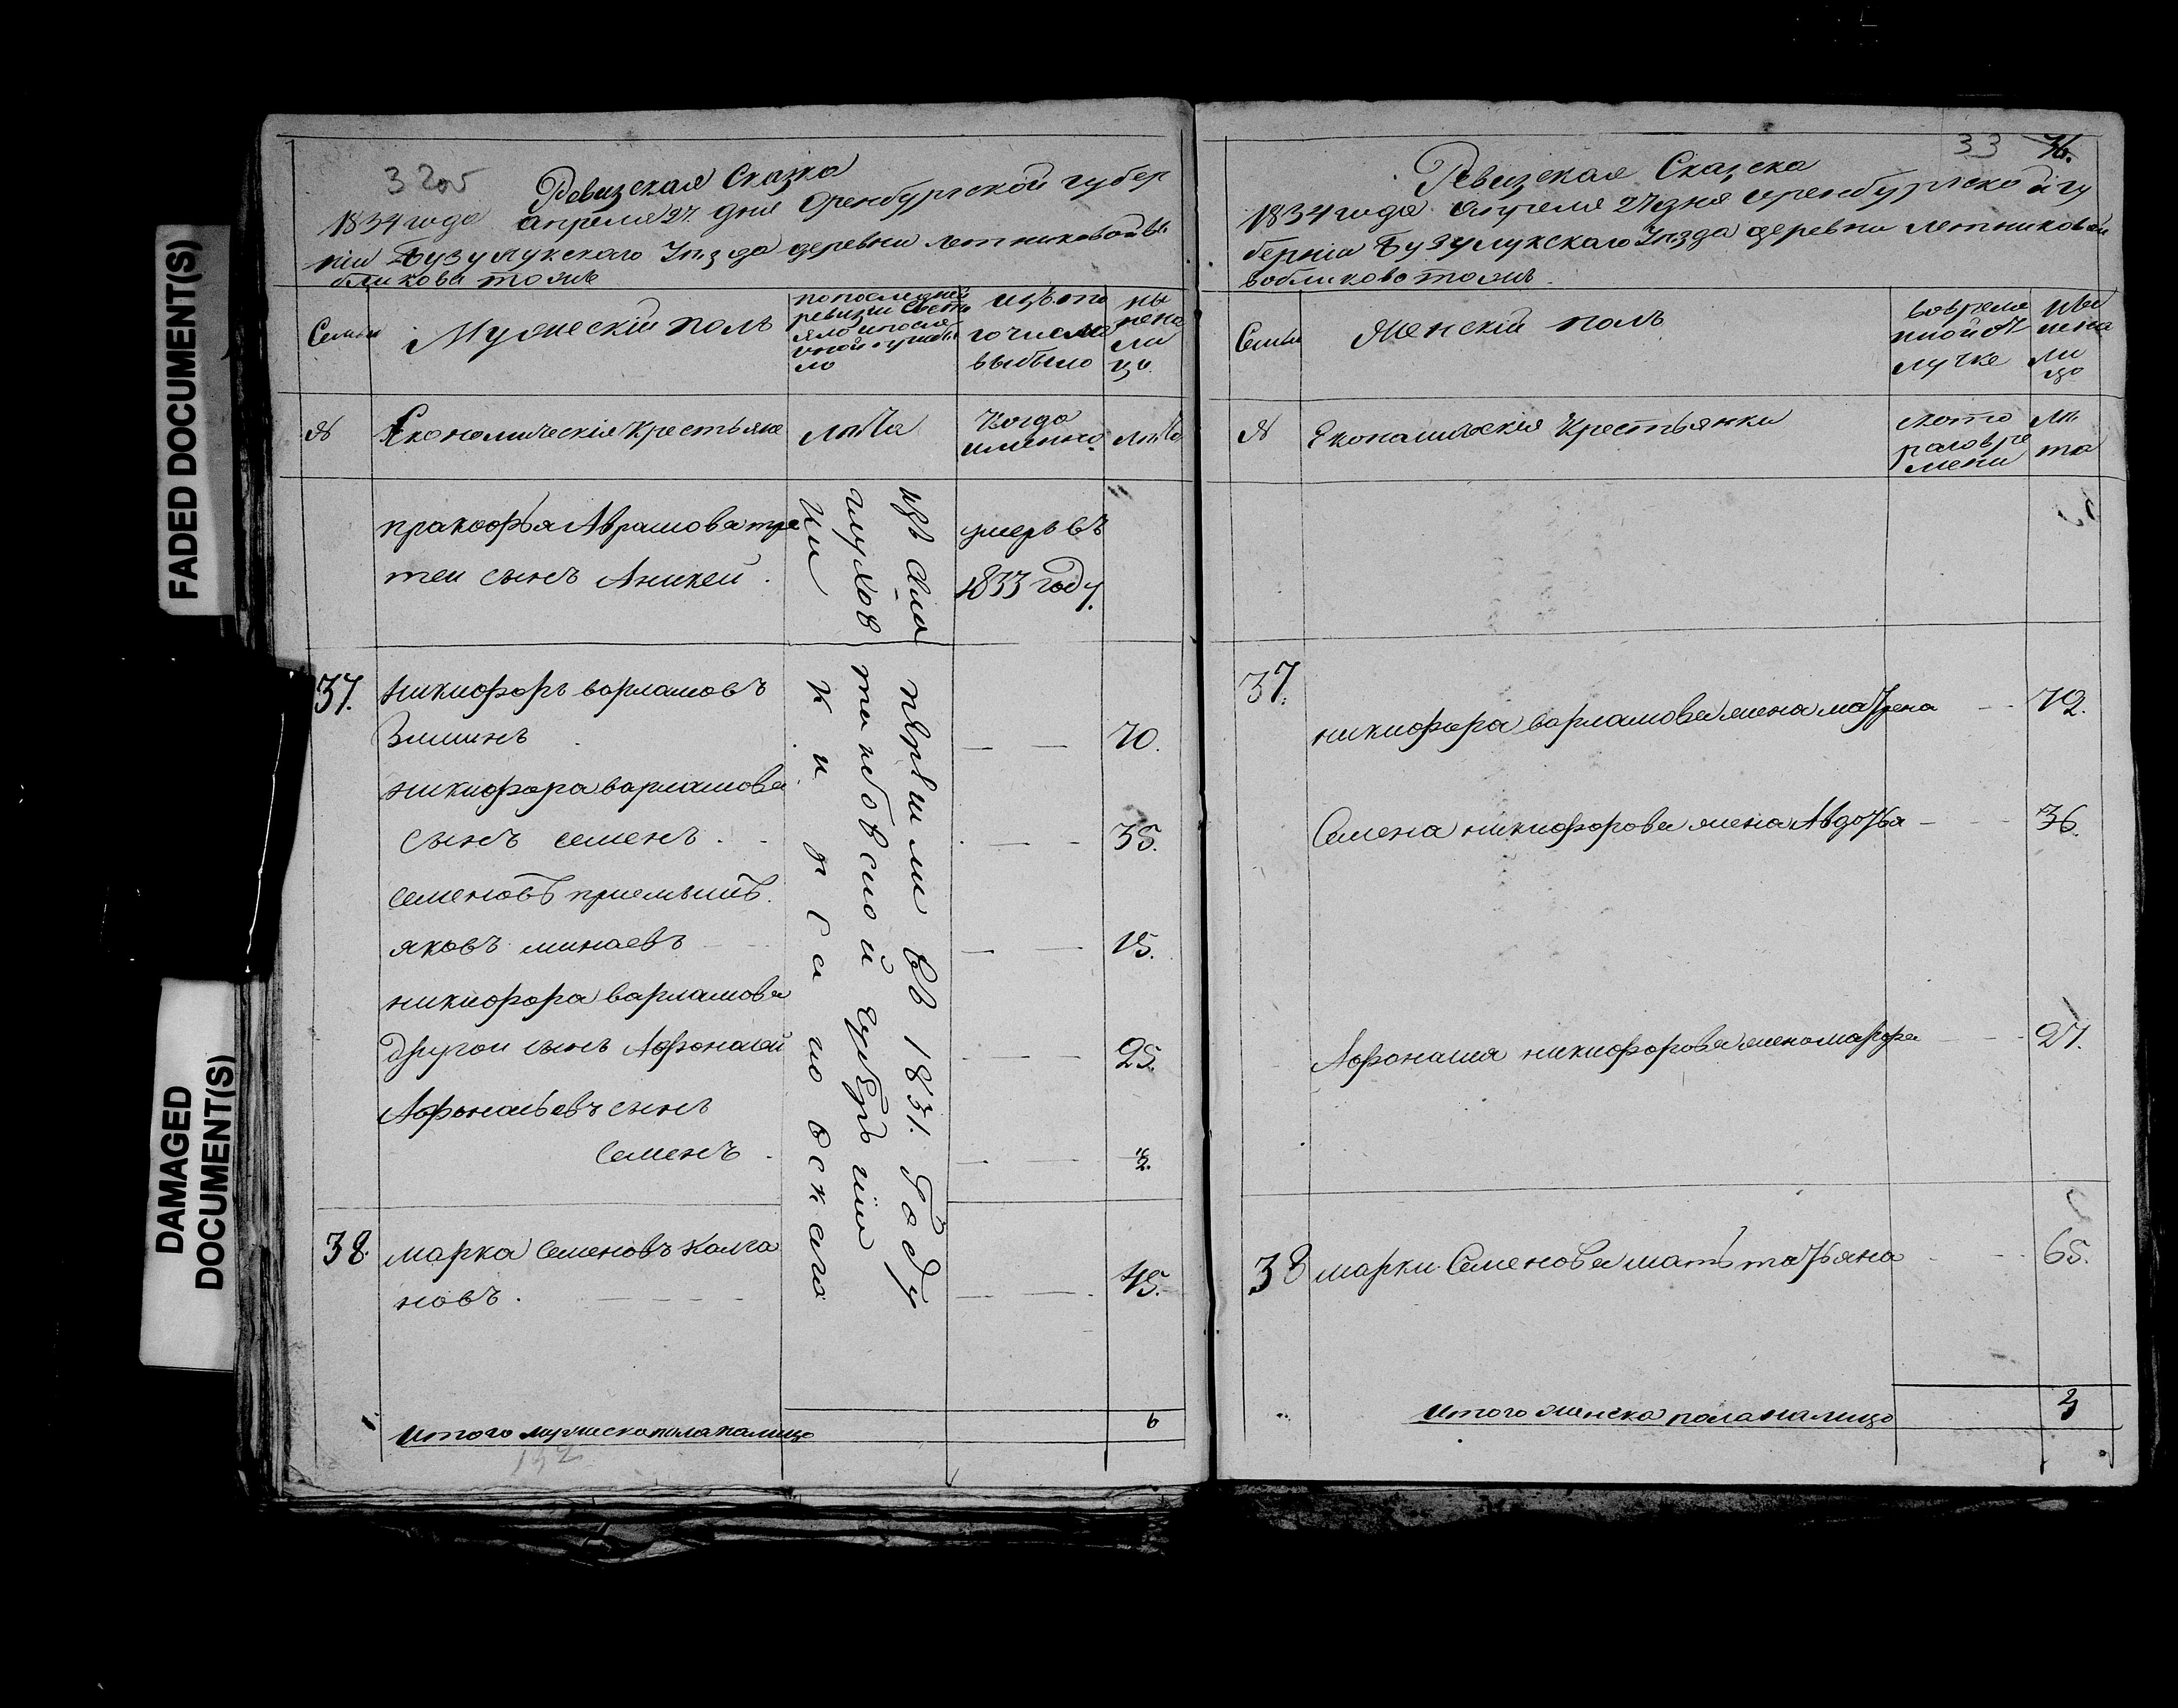 FADED DOCUMENT(S)
DAMAGED
DOCUMENT(S)
32об
Ревизская Сказка
1834 года апреля 27. дня Оренбургской губер
ніи Бузулукскаго Уѣзда деревни Летниковой вы
бликова тожъ
Семьи
Мужескій полъ
по последней
ревизіи состо
яло и после
оной прибы
ло
изъ то
го числа
выбыло
ны
нена
ли
цо
№
Економическія Крестьяне
лѣта
когда
именно
лѣта
пракофья Аврамова тре
теи сынъ Аникеи.
умеръ въ
1833 году.
37.
никифоръ варламовъ
Зиминъ
70.
никифора варламова
сынъ семенъ.
35.
семеновъ приемышъ.
яковъ минаевъ
15.
никифора варламова
другои сынъ Афонасеи
25.
Афонасьевъ сынъ
Семенъ.
2.
38.
марка Семеновъ Калга
новъ.
45.
въ 1831. Году
губерніи
к и р с а н о в с к а г о
Итого мужеска пола налицо
6
192
33
Ревизская Сказка
1834 года апреля 27 дня оренбургской гу
берніи Бузулукскаго Уѣзда деревни летниковой
вобликова тожъ.
Семьи
Женскій полъ
во време
нной от
лучке
ны
нена
ли
цо
№
Економическія Крестьянки
с кото
раго вре
мени
лѣ
та
37.
никифора варламова жена матрена
72.
Семена никифорова жена Авдотья
36.
Афонасия никифорова жена марфа
27.
38
марки Семенова мать татьяна
65.
Итого женска пола налицо
4